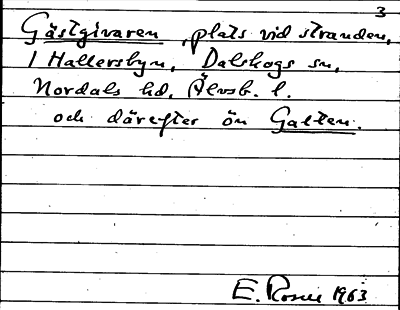 3
Gästgivaren, plats vid stranden,
i Hallersbyn, Dalskogs sn,
Nordals hd, Älvsb. l.
och därefter ön Galten.
E. Rosell 1963